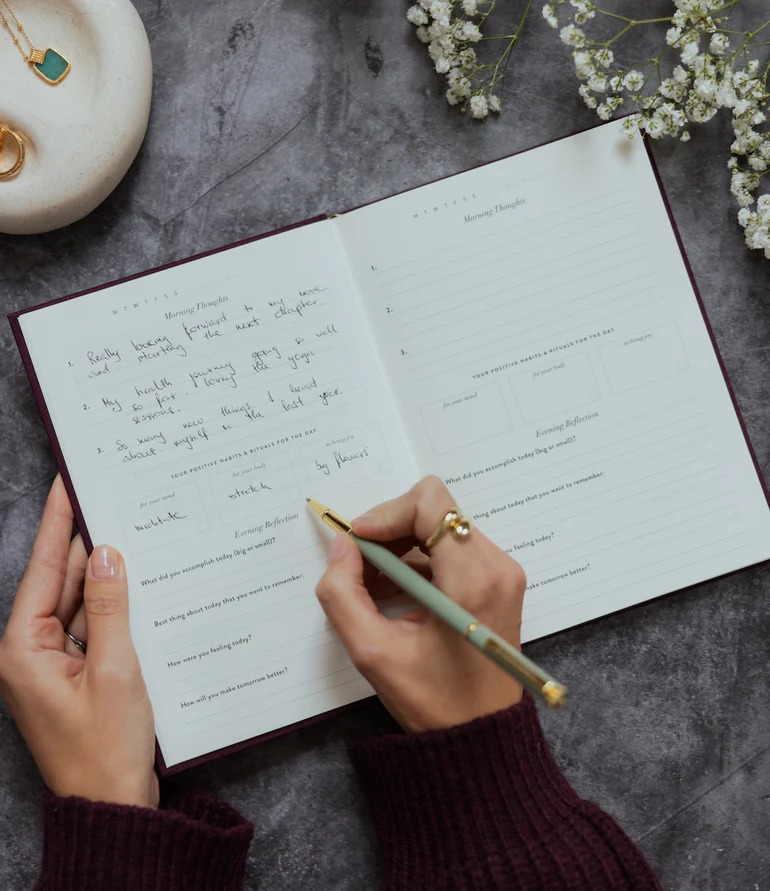 M T W T F S S
Morning Thoughts
1. Really looking forward to my move
and starting the next chapter.
2. My health journey going so well
so far. loving the yoga
sessions.
3. So many new things I learnt
about myself in the last year.
YOUR POSITIVE HABITS & RITUALS FOR THE DAY
for your mind
meditate
for your body
stretch
to bring joy
buy flowers
Evening Reflection
What did you accomplish today (big or small)?
Best thing about today that you want to remember:
How were you feeling today?
How will you make tomorrow better?
M T W T F S S
Morning Thoughts
1.
2.
3.
YOUR POSITIVE HABITS & RITUALS FOR THE DAY
for your mind
for your body
to bring joy
Evening Reflection
What did you accomplish today (big or small)?
thing about today that you want to remember:
you feeling today?
make tomorrow better?